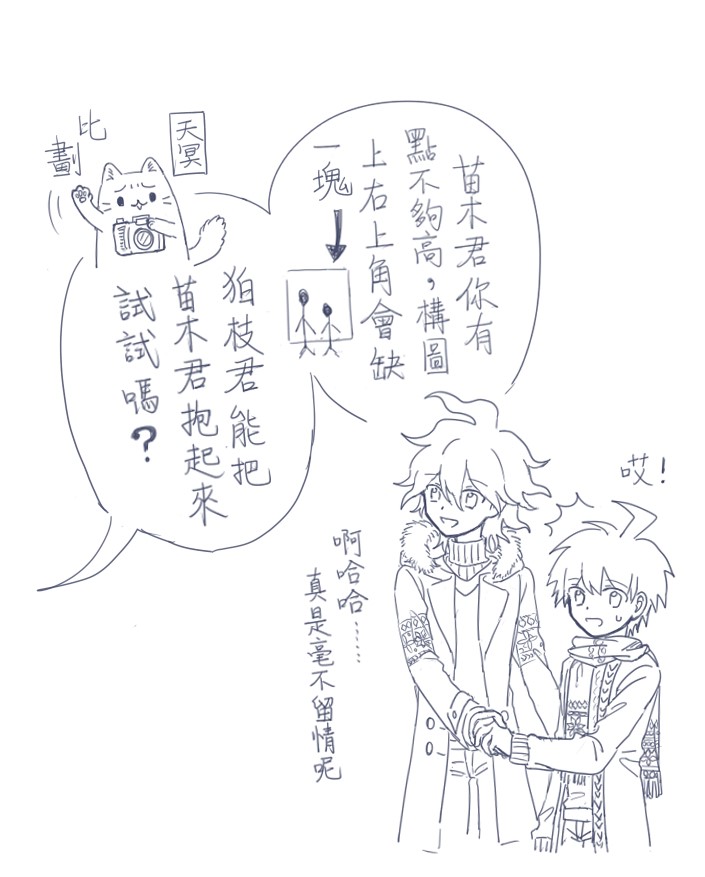 苗木君你有
點不夠高，構圖
上右上角會缺
一塊
天冥
比
劃
狛枝君能把
苗木君抱起來
試試嗎？
哎！
啊哈哈……
真是毫不留情呢